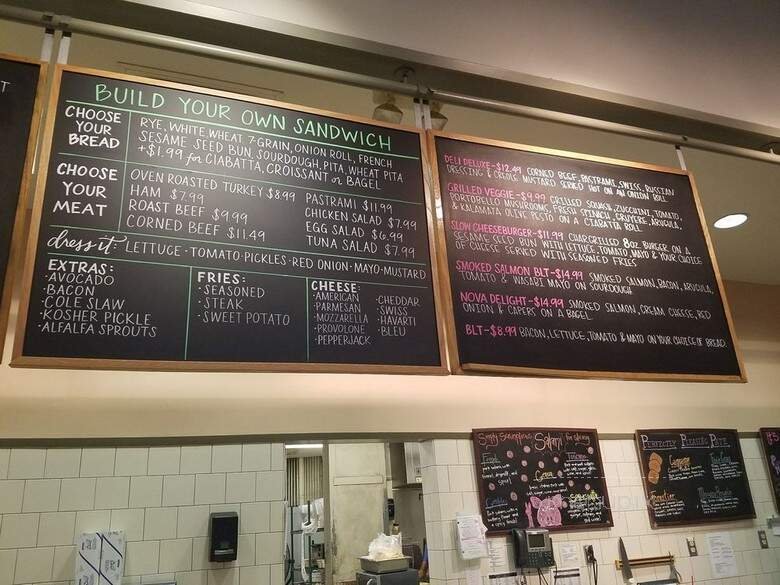 T
BUILD YOUR OWN SANDWICH
CHOOSE
YOUR
BREAD
RYE, WHITE, WHEAT 7-GRAIN, ONION ROLL, FRENCH
SESAME SEED BUN, SOURDOUGH, PITA, WHEAT PITA
+$1.99 for CIABATTA, CROISSANT or BAGEL
CHOOSE
YOUR
MEAT
OVEN ROASTED TURKEY $8.99
HAM $7.99
ROAST BEEF $9.99
CORNED BEEF $11.49
PASTRAMI $11.99
CHICKEN SALAD $7.99
EGG SALAD $6.99
TUNA SALAD $7.99
dress it: LETTUCE · TOMATO · PICKLES · RED ONION · MAYO · MUSTARD
EXTRAS:
·AVOCADO
·BACON
·COLE SLAW
·KOSHER PICKLE
·ALFALFA SPROUTS
FRIES:
·SEASONED
·STEAK
·SWEET POTATO
CHEESE:
·AMERICAN
·PARMESAN
·MOZZARELLA
·PROVOLONE
·PEPPERJACK
·CHEDDAR
·SWISS
·HAVARTI
·BLEU
DELI DELUXE-$12.49 CORNED BEEF, PASTRAMI, SWISS, RUSSIAN
DRESSING & CREOLE MUSTARD SERVED HOT ON AN ONION ROLL
GRILLED VEGGIE-$9.99 GRILLED SQUASH, ZUCCHINI, TOMATO,
PORTOBELLO MUSHROOMS, FRESH SPINACH, GRUYERE, ARUGULA,
& KALAMATA OLIVE PESTO ON A CIABATTA ROLL
SLOW CHEESEBURGER-$11.99 CHARGRILLED 8oz. BURGER ON A
SESAME SEED BUN WITH LETTUCE, TOMATO, MAYO & YOUR CHOICE
OF CHEESE SERVED WITH SEASONED FRIES
SMOKED SALMON BLT-$14.99 SMOKED SALMON, BACON, ARUGULA,
TOMATO & WASABI MAYO ON SOURDOUGH
NOVA DELIGHT-$14.99 SMOKED SALMON, CREAM CHEESE, RED
ONION & CAPERS ON A BAGEL
BLT-$8.99 BACON, LETTUCE, TOMATO & MAYO ON YOUR CHOICE OF BREAD.
Simply Scrumptious Salami for slicing
Toscano
Genoa
PERFECTLY PLEASING PATE